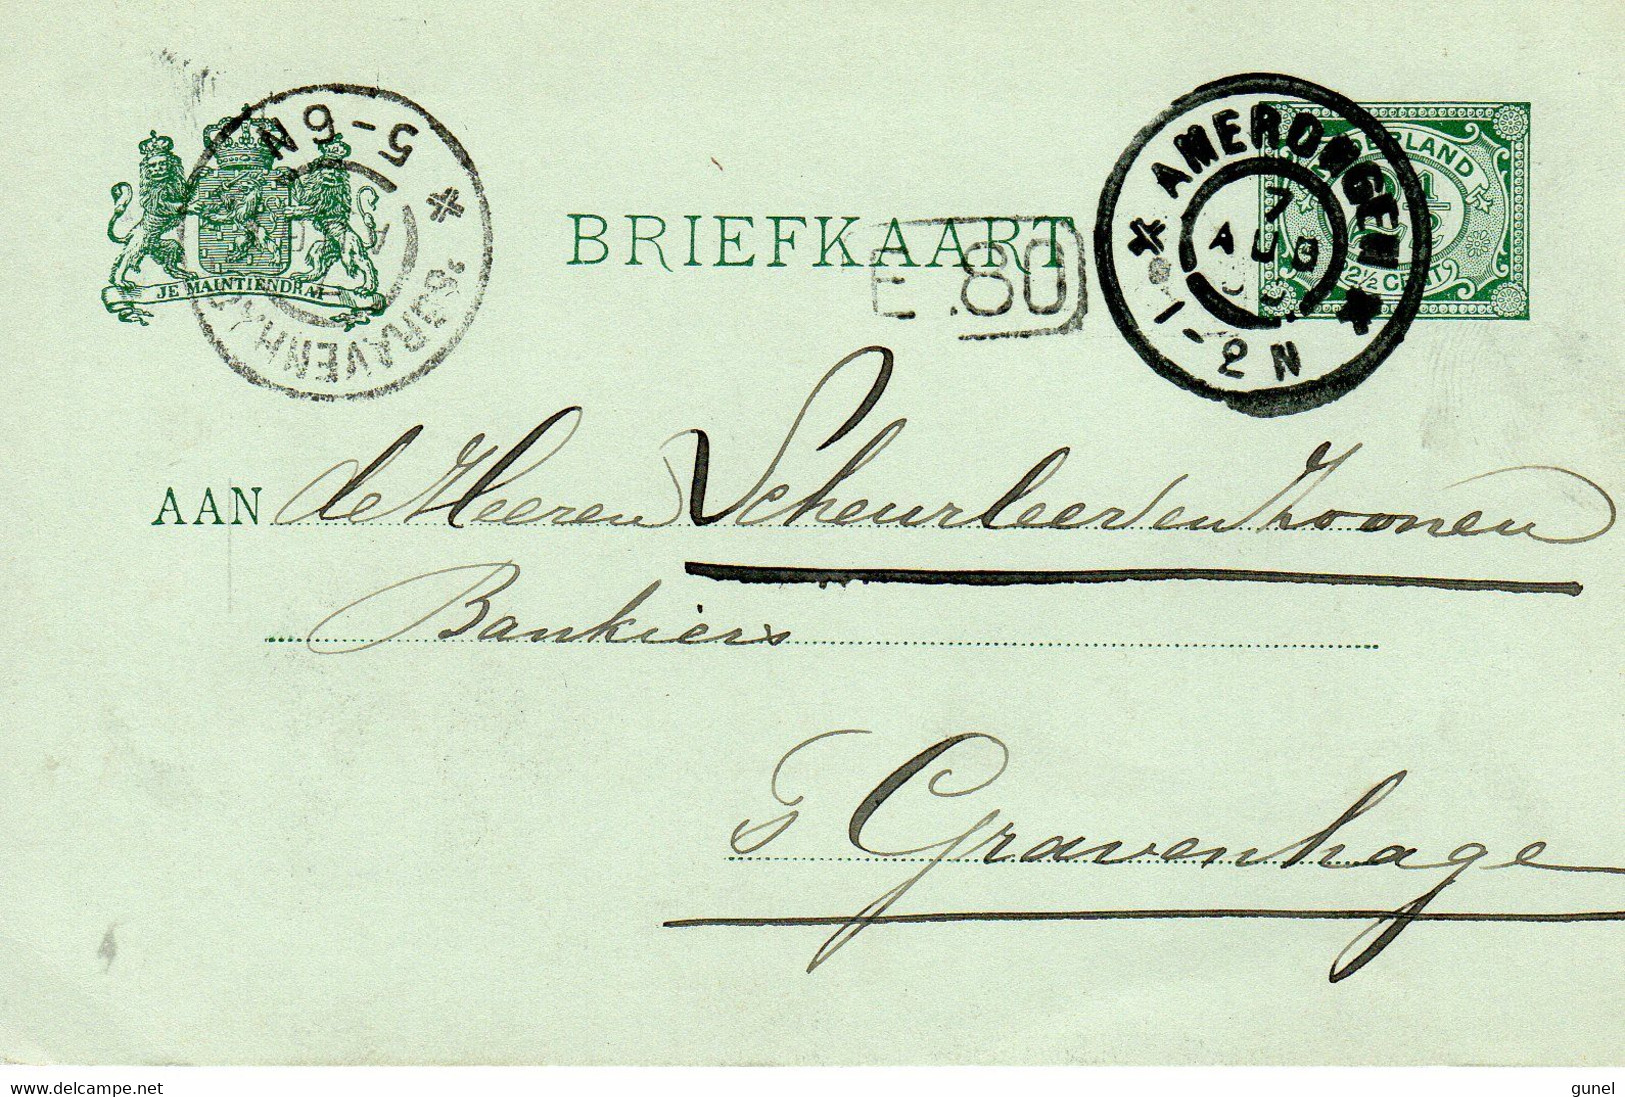 5-6N
'SGRAVENHAGE
JE MAINTIENDRAI
BRIEFKAART
E .80
AMERONGEN
7
AUG
1-2N
NEDERLAND
2½
2½ CENT
AAN de Heeren Scheurleer en Zoonen
Bankiers
s Gravenhage
www.delcampe.net
gunel